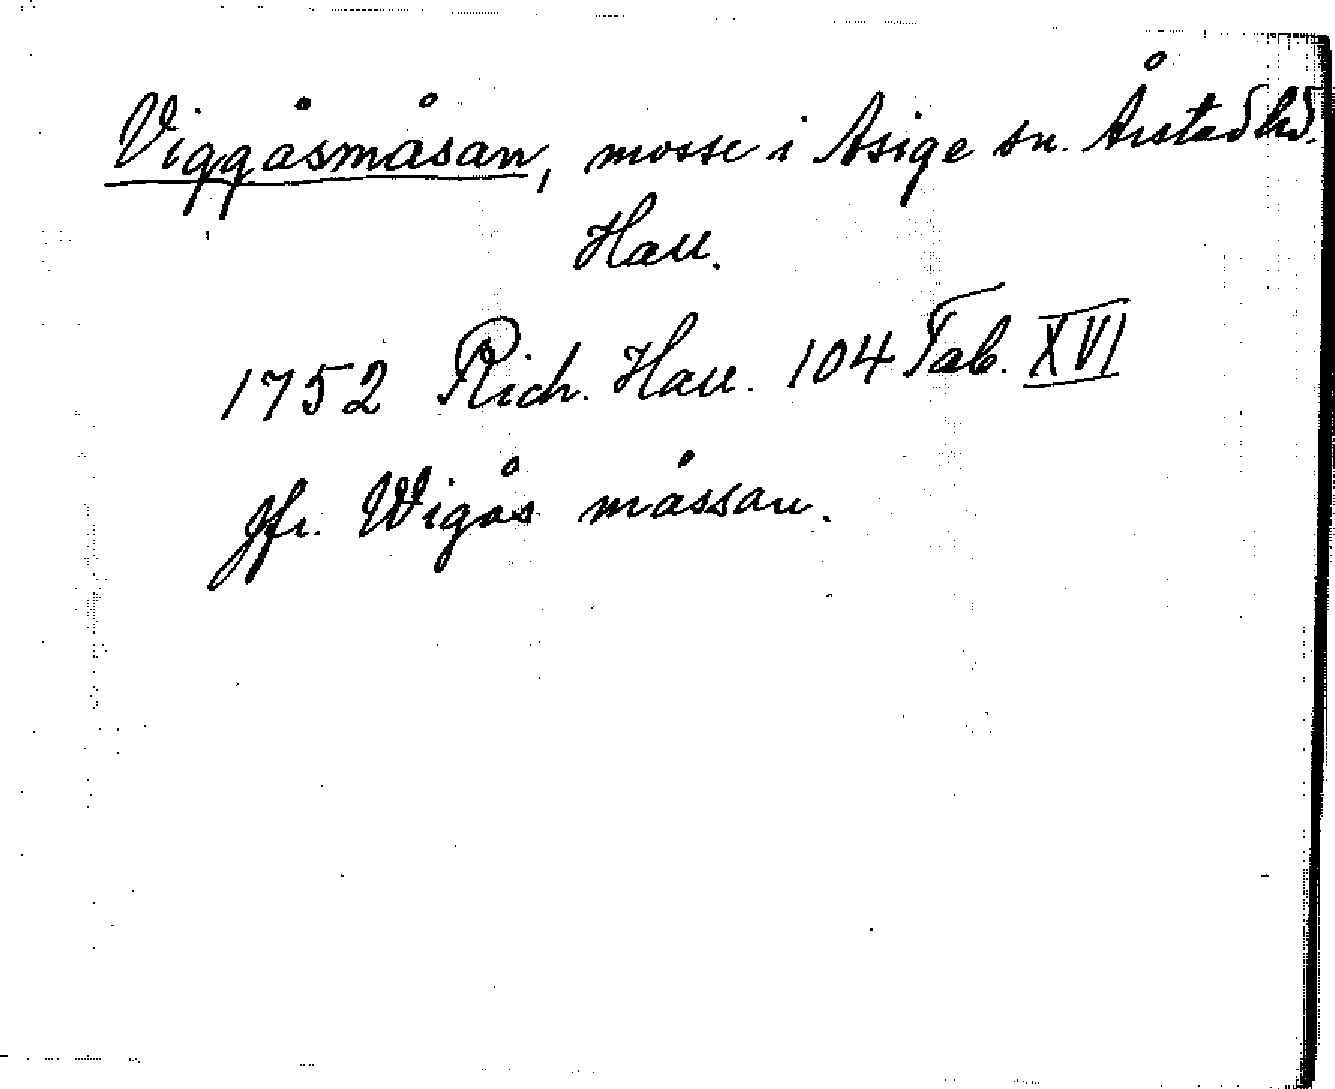 Viggåsmåsan, mosse i Asige sn. Årstad hd.
Hall.
1752 Rich. Hall. 104 Tab. XVI
Jfr. Wigås måssan.